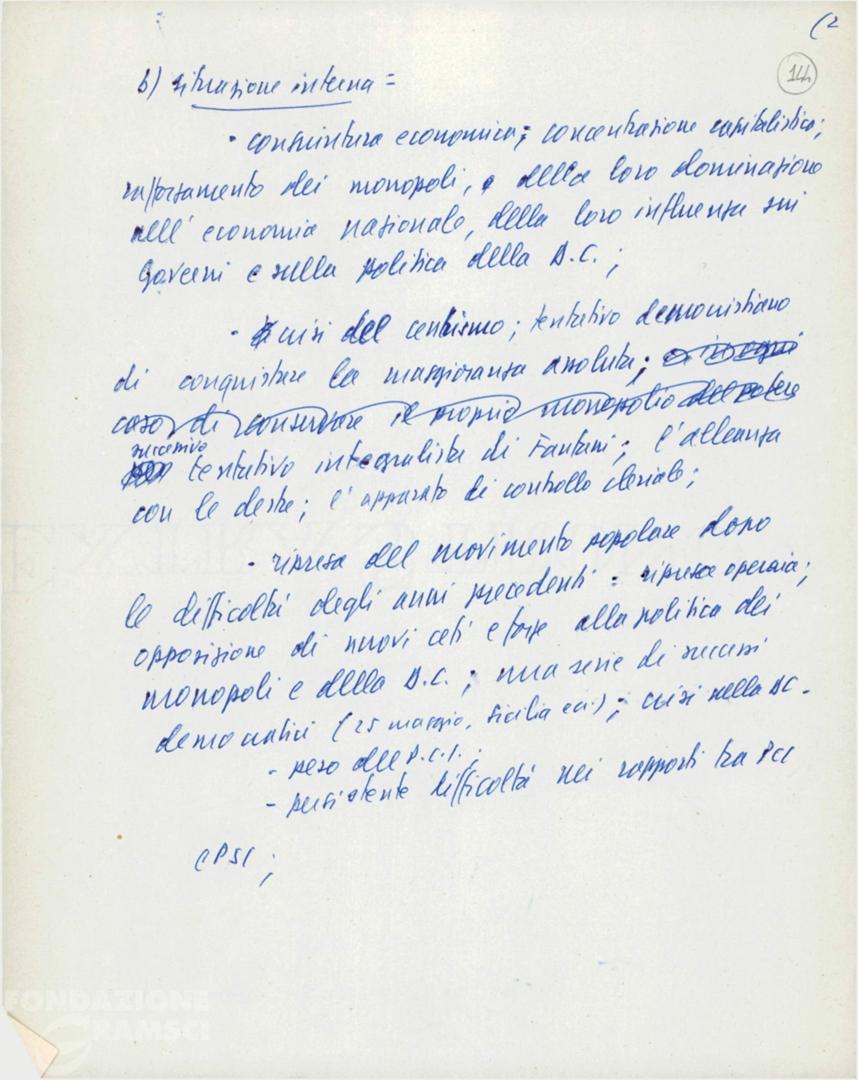 (2
144
b) situazione interna =
- congiuntura economica; concentrazione capitalistica;
rafforzamento dei monopoli, e della loro dominazione
nell'economia nazionale, della loro influenza sui
Governi e sulla politica della D.C.;
- crisi del centrismo; tentativo democristiano
di conquistare la maggioranza assoluta; e in ogni
caso di conservare il proprio monopolio del potere
successivo
tentativo integralista di Fanfani; l'alleanza
con le destre; l'apparato di controllo clericale;
- ripresa del movimento popolare dopo
le difficoltà degli anni precedenti = ripresa operaia;
opposizione di nuovi ceti e forze alla politica dei
monopoli e della D.C.; una serie di successi
democratici (25 maggio, Sicilia ecc.); crisi nella DC.
- peso del P.C.I.;
- persistente difficoltà nei rapporti tra PCI
e PSI;
FONDAZIONE
GRAMSCI